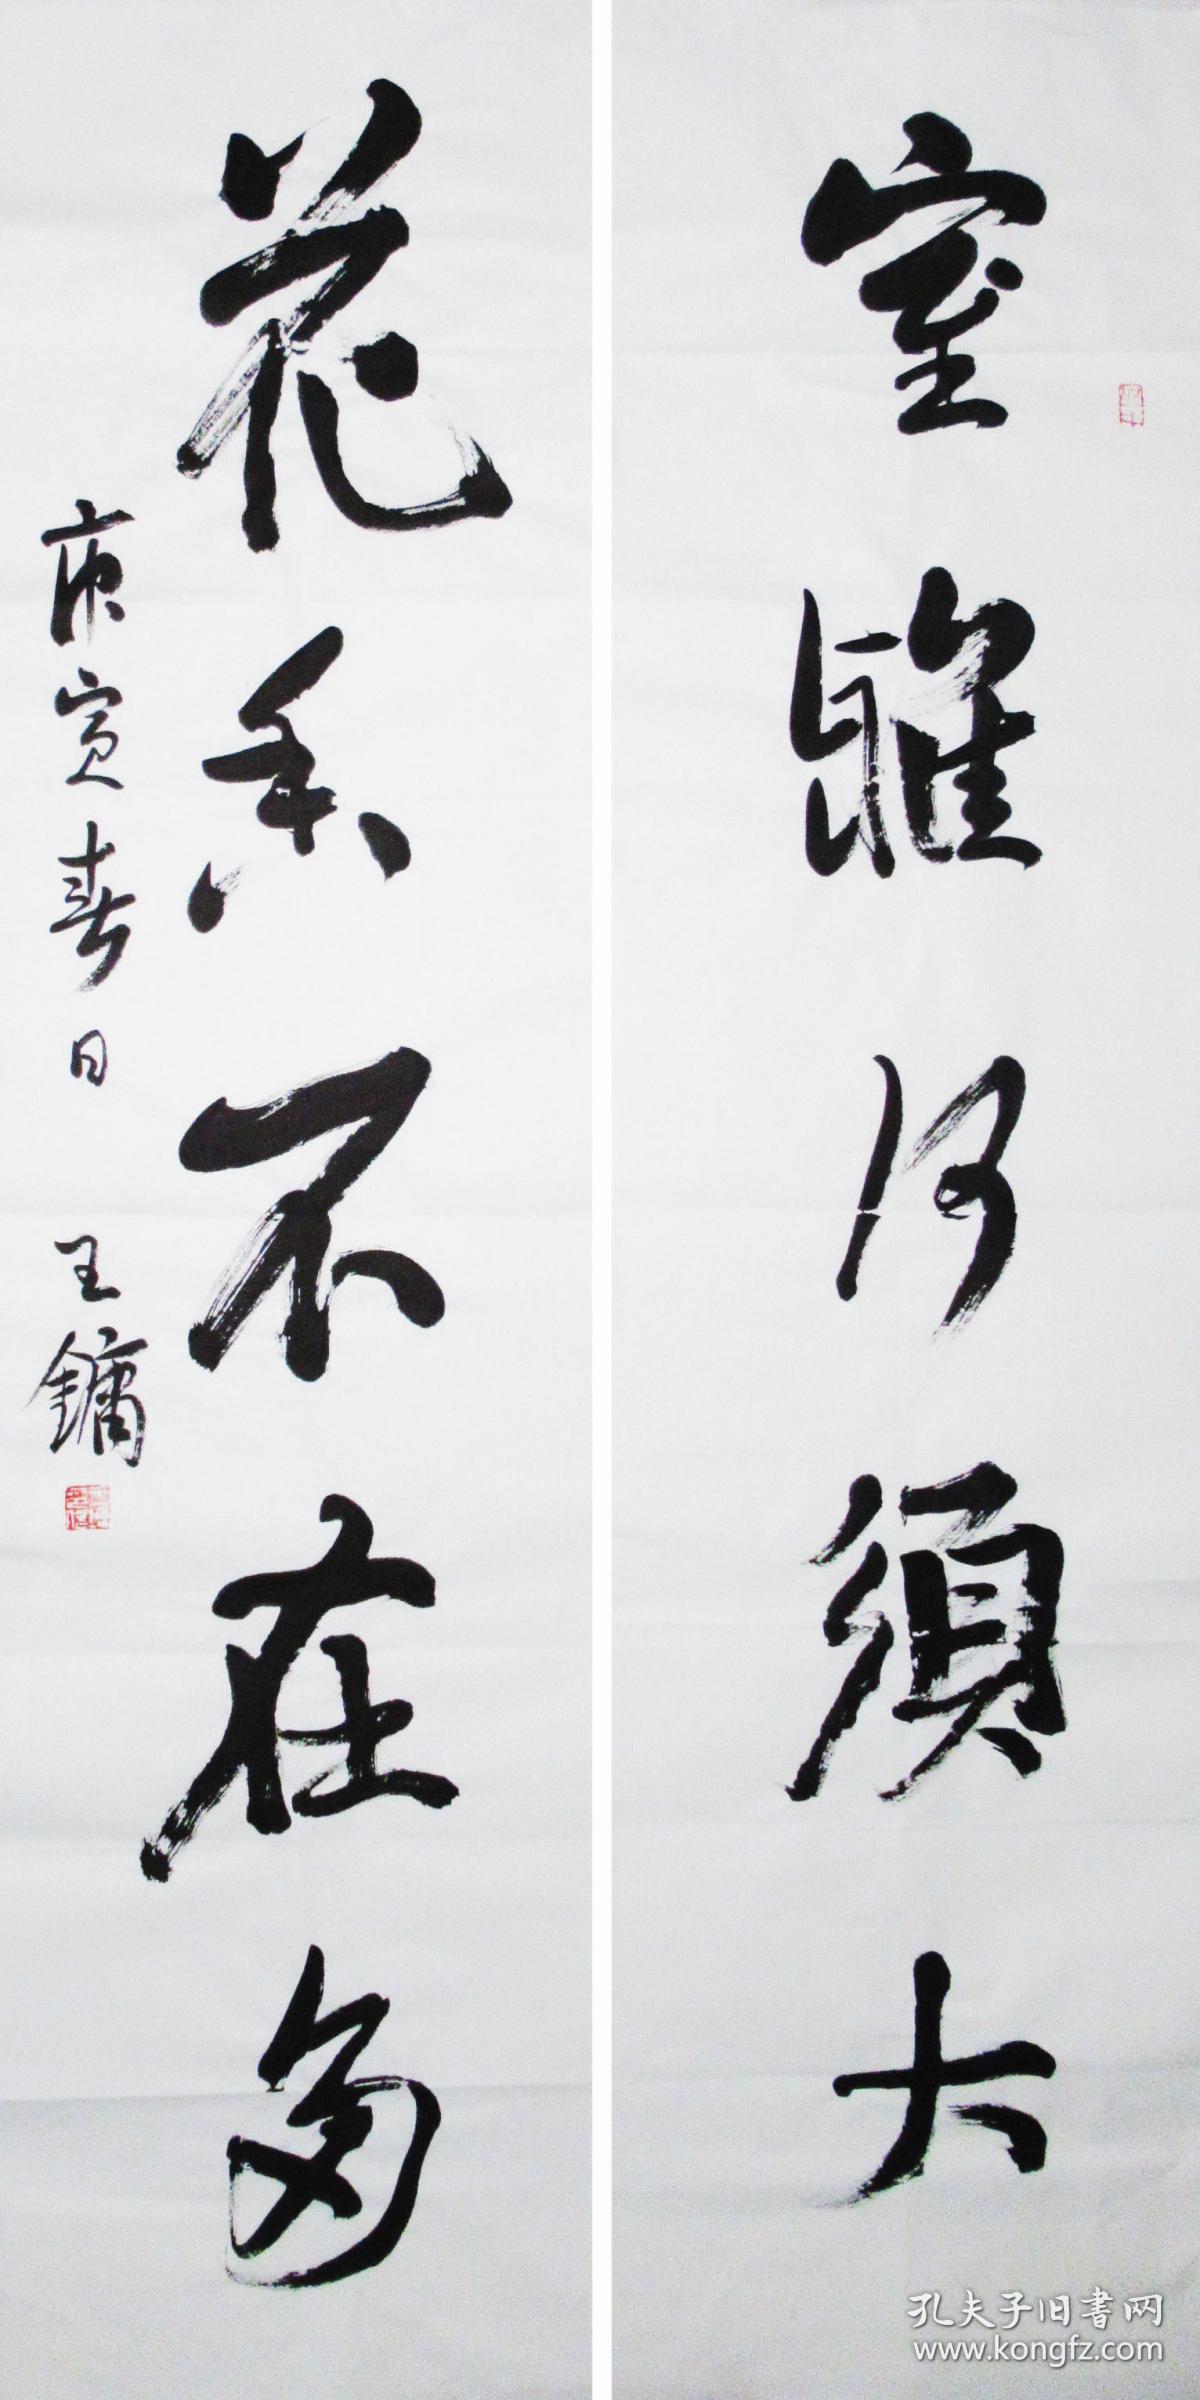 室雅何須大
花香不在多
庚寅春日 王鏞
孔夫子旧书网
www.kongfz.com